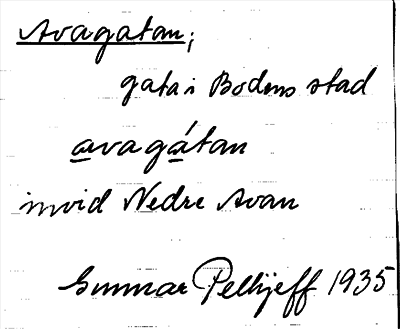 Avagatan;
gata i Bodens stad
avagátan
invid Nedre Avan
Gunnar Pellijeff 1935